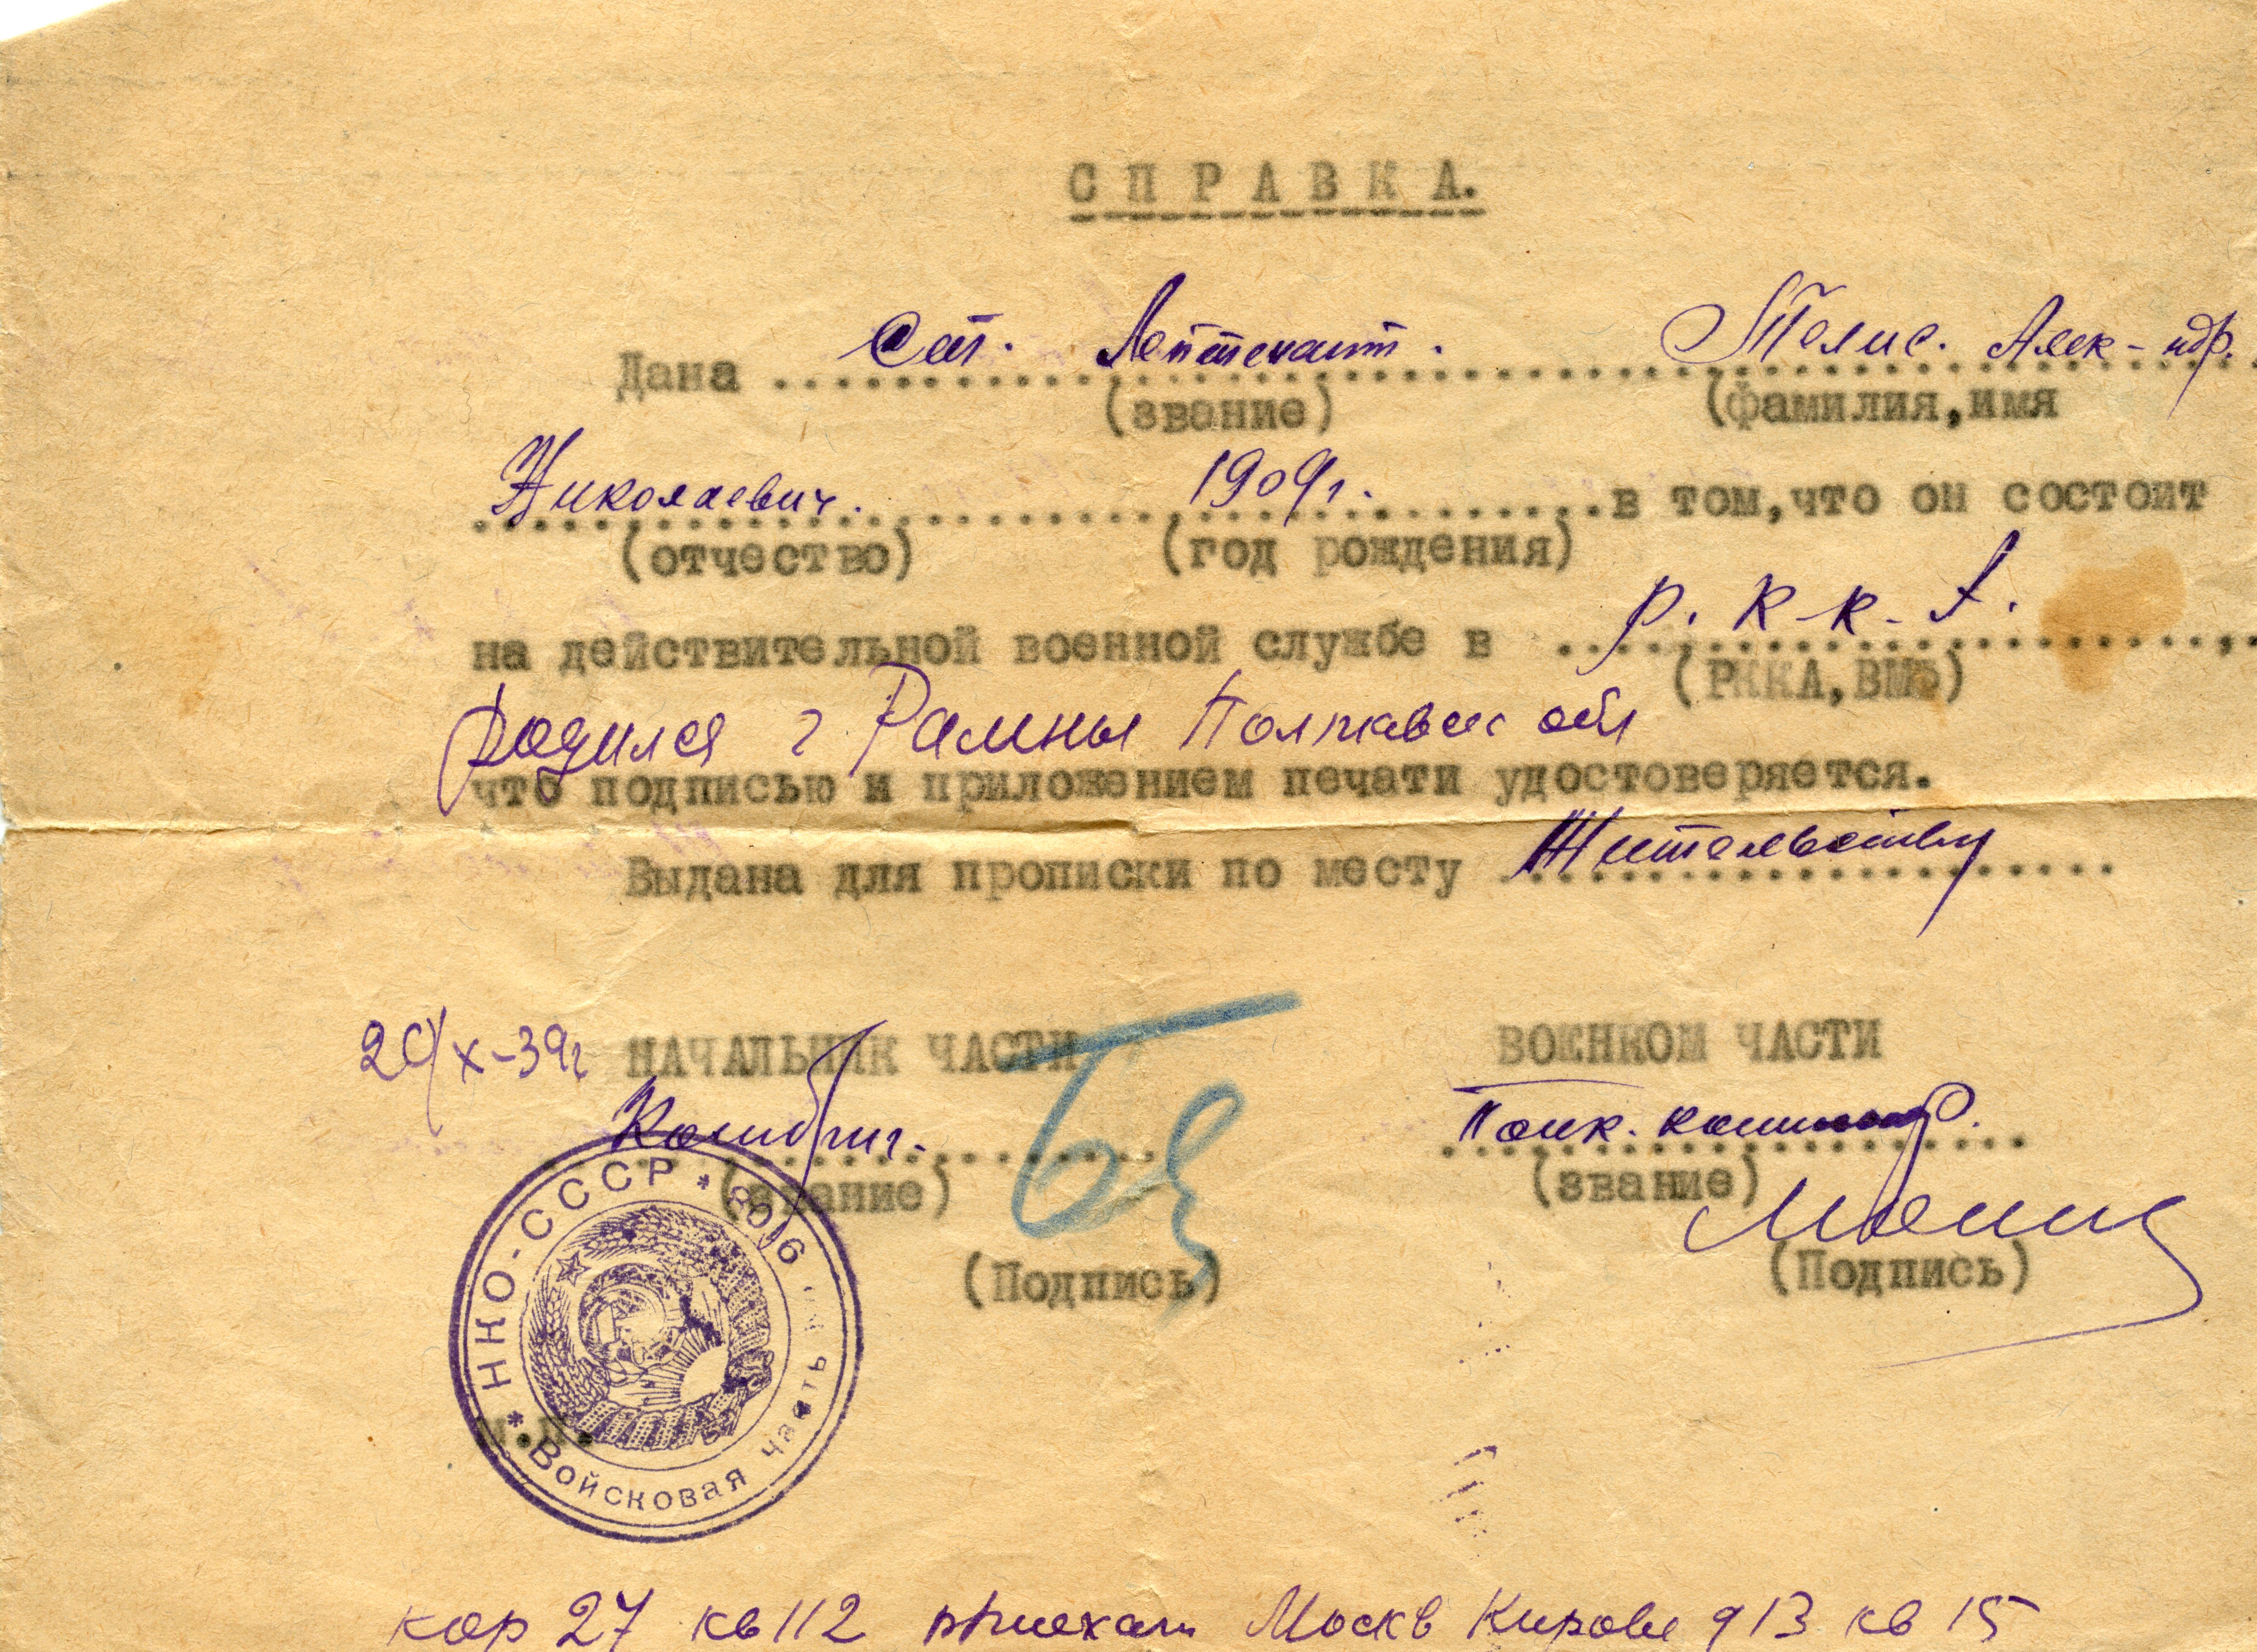 СПРАВКА.
Дана Ст. Лейтенант. Телис. Алек-ндр.
(звание) (фамилия,имя
Николаевич. 1909г. в том,что он состоит
(отчество) (год рождения)
на действительной военной службе в Р.К-К-А.
(РККА,ВМФ)
Родился г. Рамны Полтавск обл
что подписью и приложением печати удостоверяется.
Выдана для прописки по месту Жительству
X-39г НАЧАЛЬНИК ЧАСТИ ВОЕННОМ ЧАСТИ
Комбриг. Полк. комиссар.
(звание) (звание)
(Подпись) (Подпись)
* НКО-СССР * 8016
* Войсковая часть
м.п.
кор 27 кв 112 приехал Москв Кирова д 13 кв 15